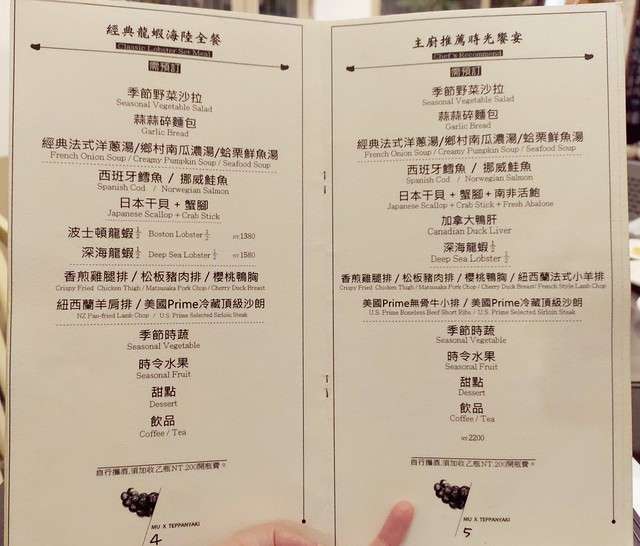 經典龍蝦海陸全餐
Classic Lobster Set Meal
需預訂
季節野菜沙拉
Seasonal Vegetable Salad
蒜蒜碎麵包
Garlic Bread
經典法式洋蔥湯/鄉村南瓜濃湯/蛤栗鮮魚湯
French Onion Soup / Creamy Pumpkin Soup / Seafood Soup
西班牙鱈魚 / 挪威鮭魚
Spanish Cod / Norwegian Salmon
日本干貝 + 蟹腳
Japanese Scallop + Crab Stick
波士頓龍蝦½ Boston Lobster ½ NT 1380
深海龍蝦½ Deep Sea Lobster ½ NT 1580
香煎雞腿排 / 松板豬肉排 / 櫻桃鴨胸
Crispy Fried Chicken Thigh / Matsusaka Pork Chop / Cherry Duck Breast
紐西蘭羊肩排 / 美國Prime冷藏頂級沙朗
NZ Pan-fried Lamb Chop / U.S. Prime Selected Sirloin Steak
季節時蔬
Seasonal Vegetable
時令水果
Seasonal Fruit
甜點
Dessert
飲品
Coffee / Tea
自行攜酒,須加收乙瓶NT.200開瓶費。
MU X TEPPANYAKI
4
主廚推薦時光饗宴
Chef's Recommend
需預訂
季節野菜沙拉
Seasonal Vegetable Salad
蒜蒜碎麵包
Garlic Bread
經典法式洋蔥湯/鄉村南瓜濃湯/蛤栗鮮魚湯
French Onion Soup / Creamy Pumpkin Soup / Seafood Soup
西班牙鱈魚 / 挪威鮭魚
Spanish Cod / Norwegian Salmon
日本干貝 + 蟹腳 + 南非活鮑
Japanese Scallop + Crab Stick + Fresh Abalone
加拿大鴨肝
Canadian Duck Liver
深海龍蝦½
Deep Sea Lobster ½
香煎雞腿排 / 松板豬肉排 / 櫻桃鴨胸 / 紐西蘭法式小羊排
Crispy Fried Chicken Thigh / Matsusaka Pork Chop / Cherry Duck Breast/ French Style Lamb Chop
美國Prime無骨牛小排 / 美國Prime冷藏頂級沙朗
U.S. Prime Boneless Beef Short Ribs / U.S. Prime Selected Sirloin Steak
季節時蔬
Seasonal Vegetable
時令水果
Seasonal Fruit
甜點
Dessert
飲品
Coffee / Tea
NT 2200
自行攜酒,須加收乙瓶NT.200開瓶費。
MU X TEPPANYAKI
5